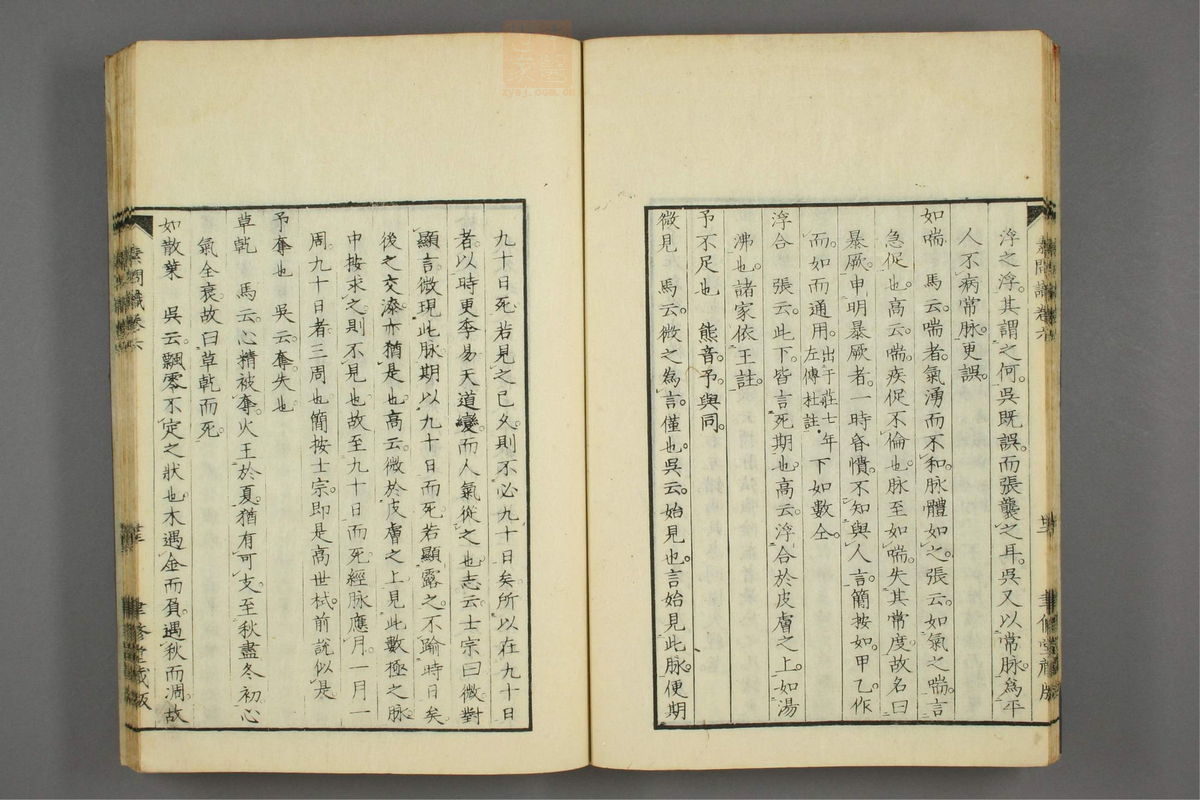 浮之浮。其謂之何。吳既誤。而張襲之耳。吳又以常脉。爲平
人不病常脉。更誤。
如喘　馬云。喘者。氣湧而不和。脉體如之。張云。如氣之喘。言
急促也。高云。喘。疾促不倫也。脉至如喘。失其常度。故名曰
暴厥。申明暴厥者。一時昏憒。不知與人言。簡按如。甲乙作
而。如而通用。出于莊七年左傳杜註。下如數仝。
浮合　張云。此下。皆言死期也。高云。浮合於皮膚之上。如湯
沸也。諸家依王註。
予不足也　熊音。予。與同。
微見　馬云。微之爲言。僅也。吳云。始見也。言始見此脉。便期
九十日死。若見之已久。則不必九十日矣。所以在九十日
者。以時更季易。天道變。而人氣從之也。志云。士宗曰。微對
顯言。微現此脉。期以九十日而死。若顯露之。不踰時日矣。
後之交漆亦猶是也。高云。微於皮膚之上。見此數極之脉。
中按求之。則不見也。故至九十日而死。經脉應月。一月一
周。九十日者。三周也。簡按士宗。即是高世栻。前說似是。
予奪也　吳云。奪。失也。
草乾　馬云。心精被奪。火王於夏。猶有可支。至秋盡冬初。心
氣全衰。故曰草乾而死。
如散葉　吳云。飄零不定之狀也。木遇金而負。遇秋而凋。故
素問識卷六
聿修堂藏版
素問識卷六
聿修堂藏版
zyaj.com.cn